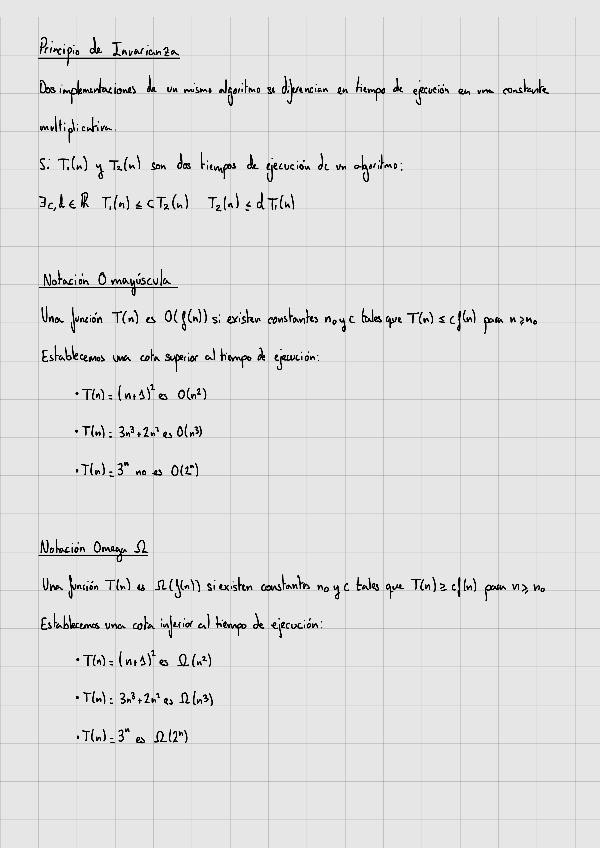 Principio de Invarianza
Dos implementaciones de un mismo algoritmo se diferencian en tiempo de ejecución en una constante
multiplicativa.
Si T₁(n) y T₂(n) son dos tiempos de ejecución de un algoritmo:
∃c,d ∈ ℝ T₁(n) ≤ cT₂(n) T₂(n) ≤ dT₁(n)
Notación O mayúscula
Una función T(n) es O(f(n)) si existen constantes n₀ y c tales que T(n) ≤ cf(n) para n ≥ n₀
Establecemos una cota superior al tiempo de ejecución:
• T(n) = (n+1)² es O(n²)
• T(n) = 3n³+2n² es O(n³)
• T(n) = 3ⁿ no es O(2ⁿ)
Notación Omega Ω
Una función T(n) es Ω(f(n)) si existen constantes n₀ y c tales que T(n) ≥ cf(n) para n ≥ n₀
Establecemos una cota inferior al tiempo de ejecución:
• T(n) = (n+1)² es Ω(n²)
• T(n) = 3n³+2n² es Ω(n³)
• T(n) = 3ⁿ es Ω(2ⁿ)